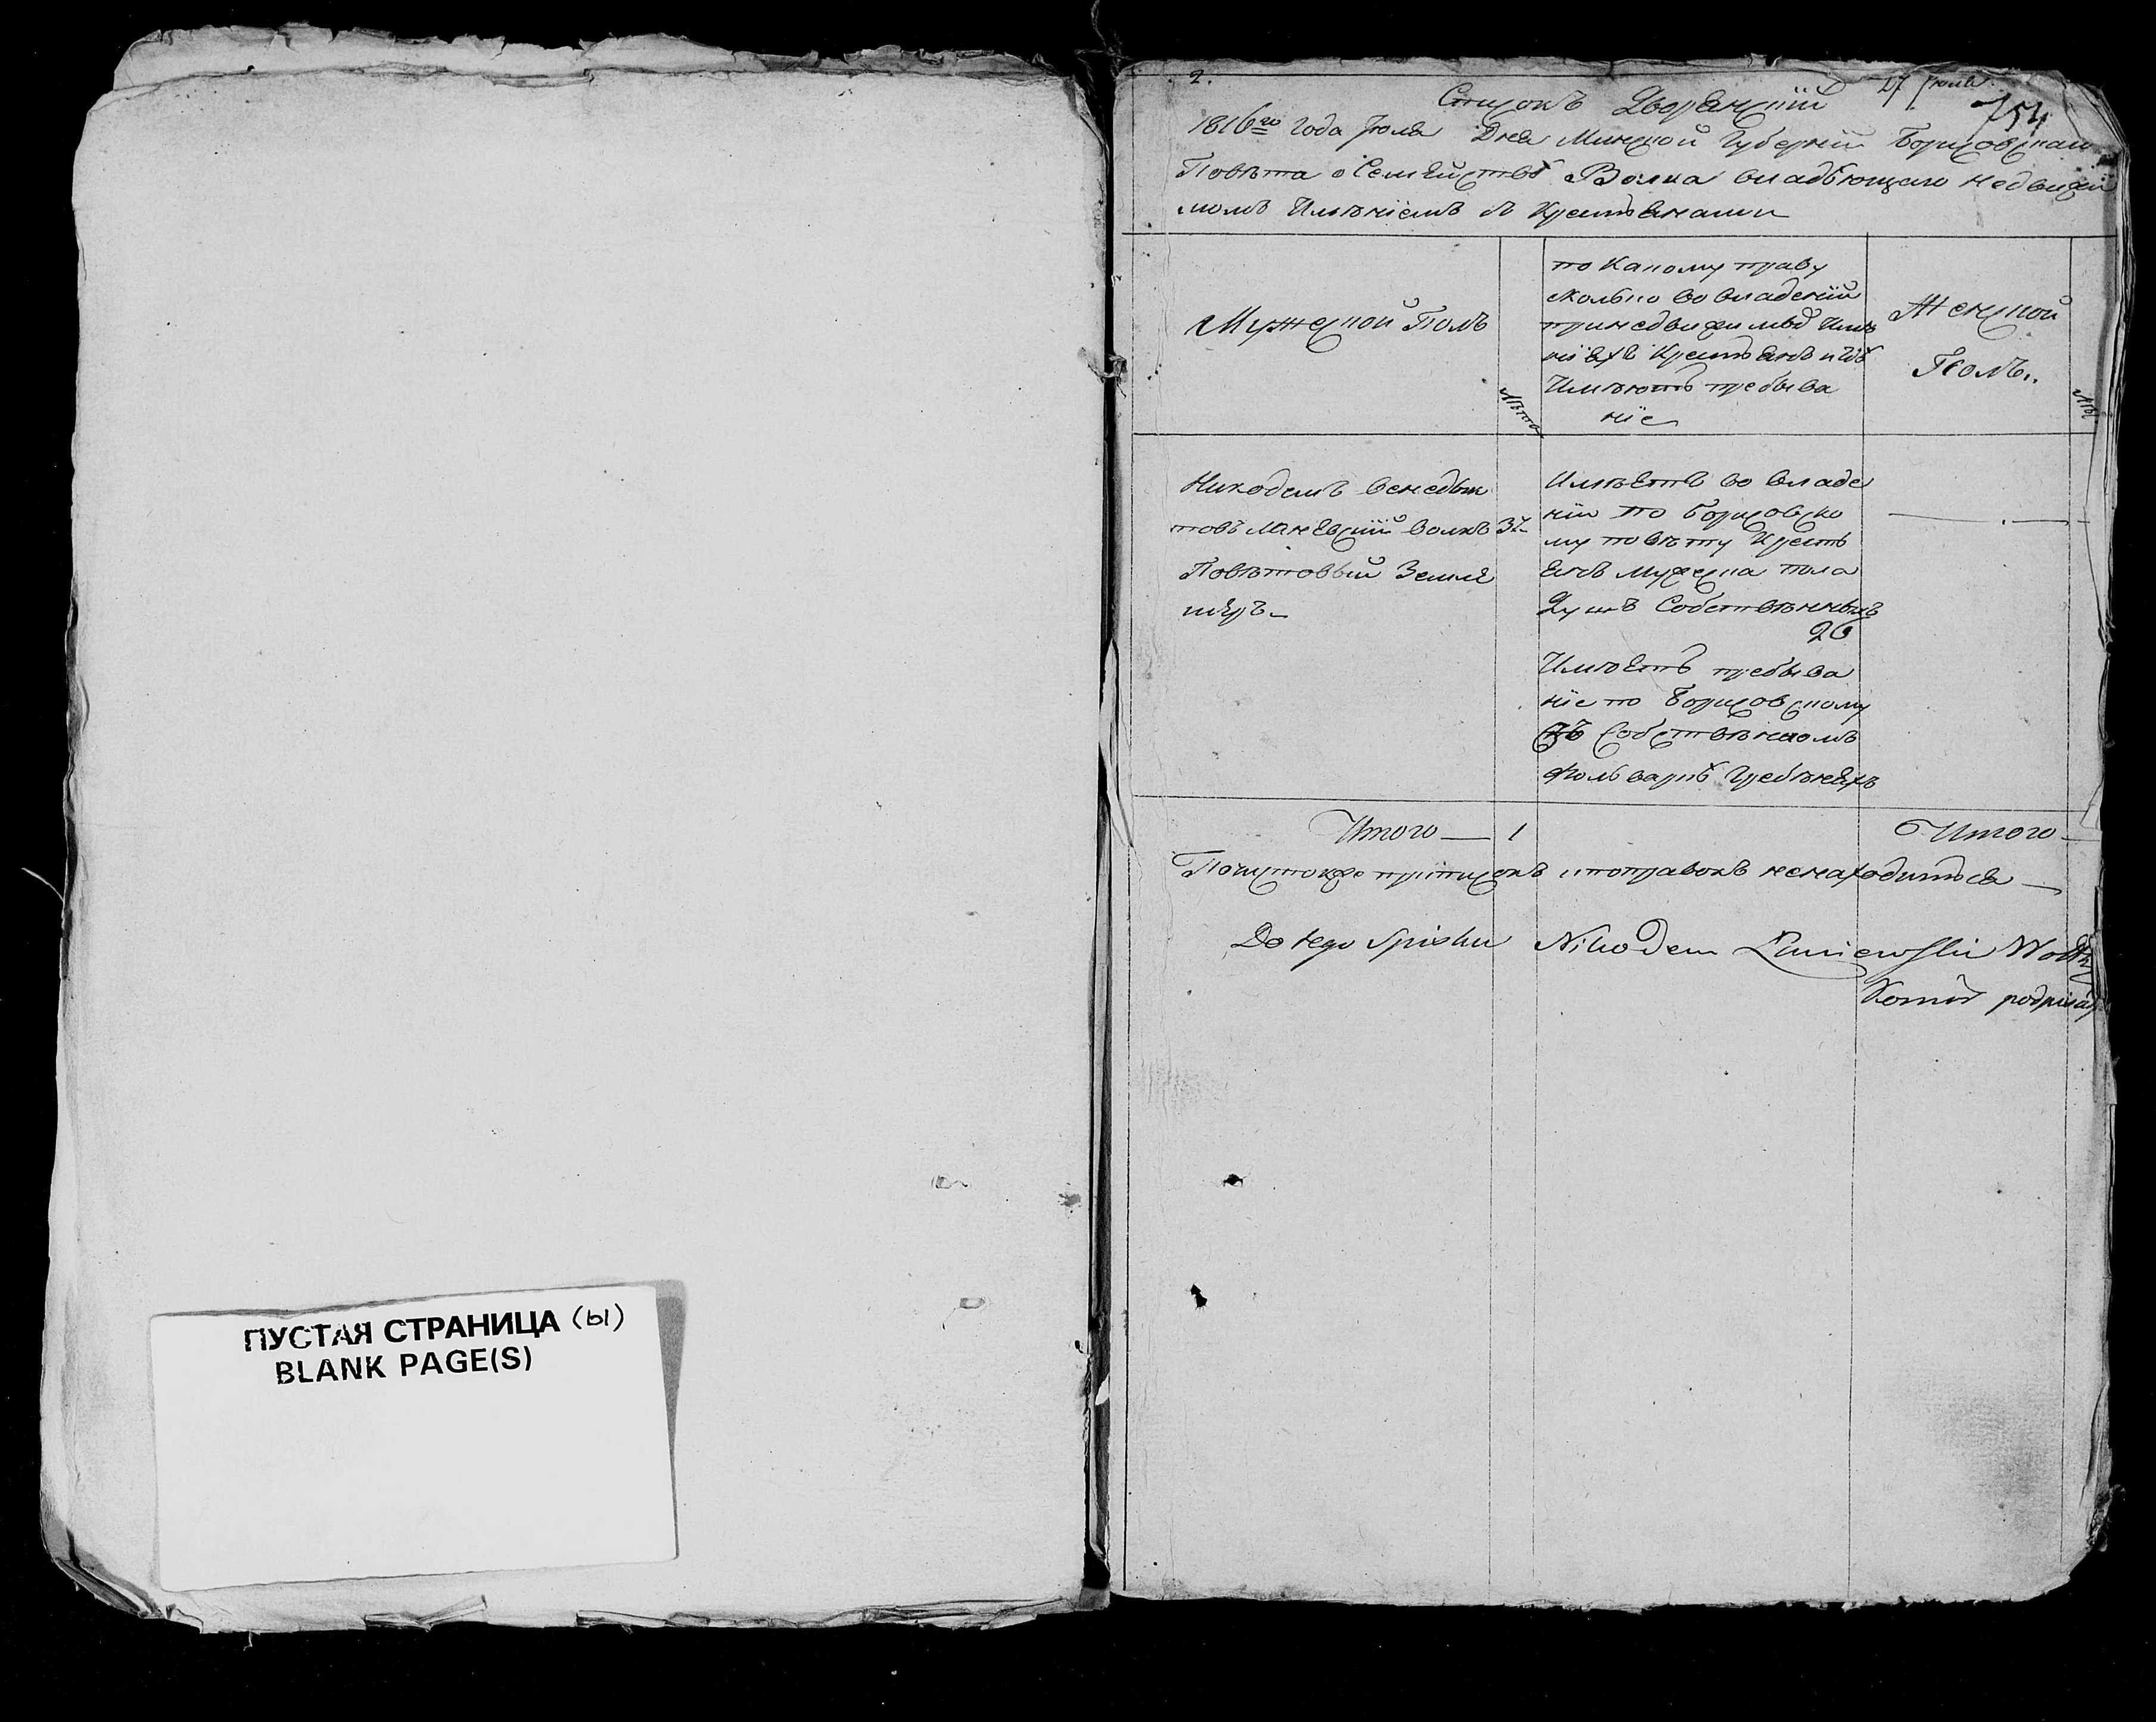 ПУСТАЯ СТРАНИЦА (ы)
BLANK PAGE(S)
2.
27 Июля
754
Списокъ Дворянскій
1816го Года Июля Дня Минской Губерніи Борисовскаго
Повѣта о Семействѣ Волка владѣющаго недвижи
момъ Имѣніемъ съ Крестьянами
Мужеской Полъ
Лѣта
по какому праву
сколько во владеніи
при недвижимыхъ Имѣ
ніяхъ Крестьянъ и гдѣ
Имѣютъ пребыва
ніе
Женской
Полъ..
Лѣ
Никодемъ Венедык
товъ Ланевскій Волкъ 37
Повѣтовый Земле
мѣръ
Имѣетъ во владе
ніи по Борисовско
му повѣту Кресть
янъ мужеска пола
Душъ Собственныхъ
26
Имѣетъ пребыва
ніе по Борисовскому
въ Собственномъ
Фольваркѣ Гребеняхъ
Итого — 1
Итого —
Почистокъ приписокъ и поправокъ ненаходитьса
Do tego Spisku Nikodem Łaniewski Wołk
Komór podpisał